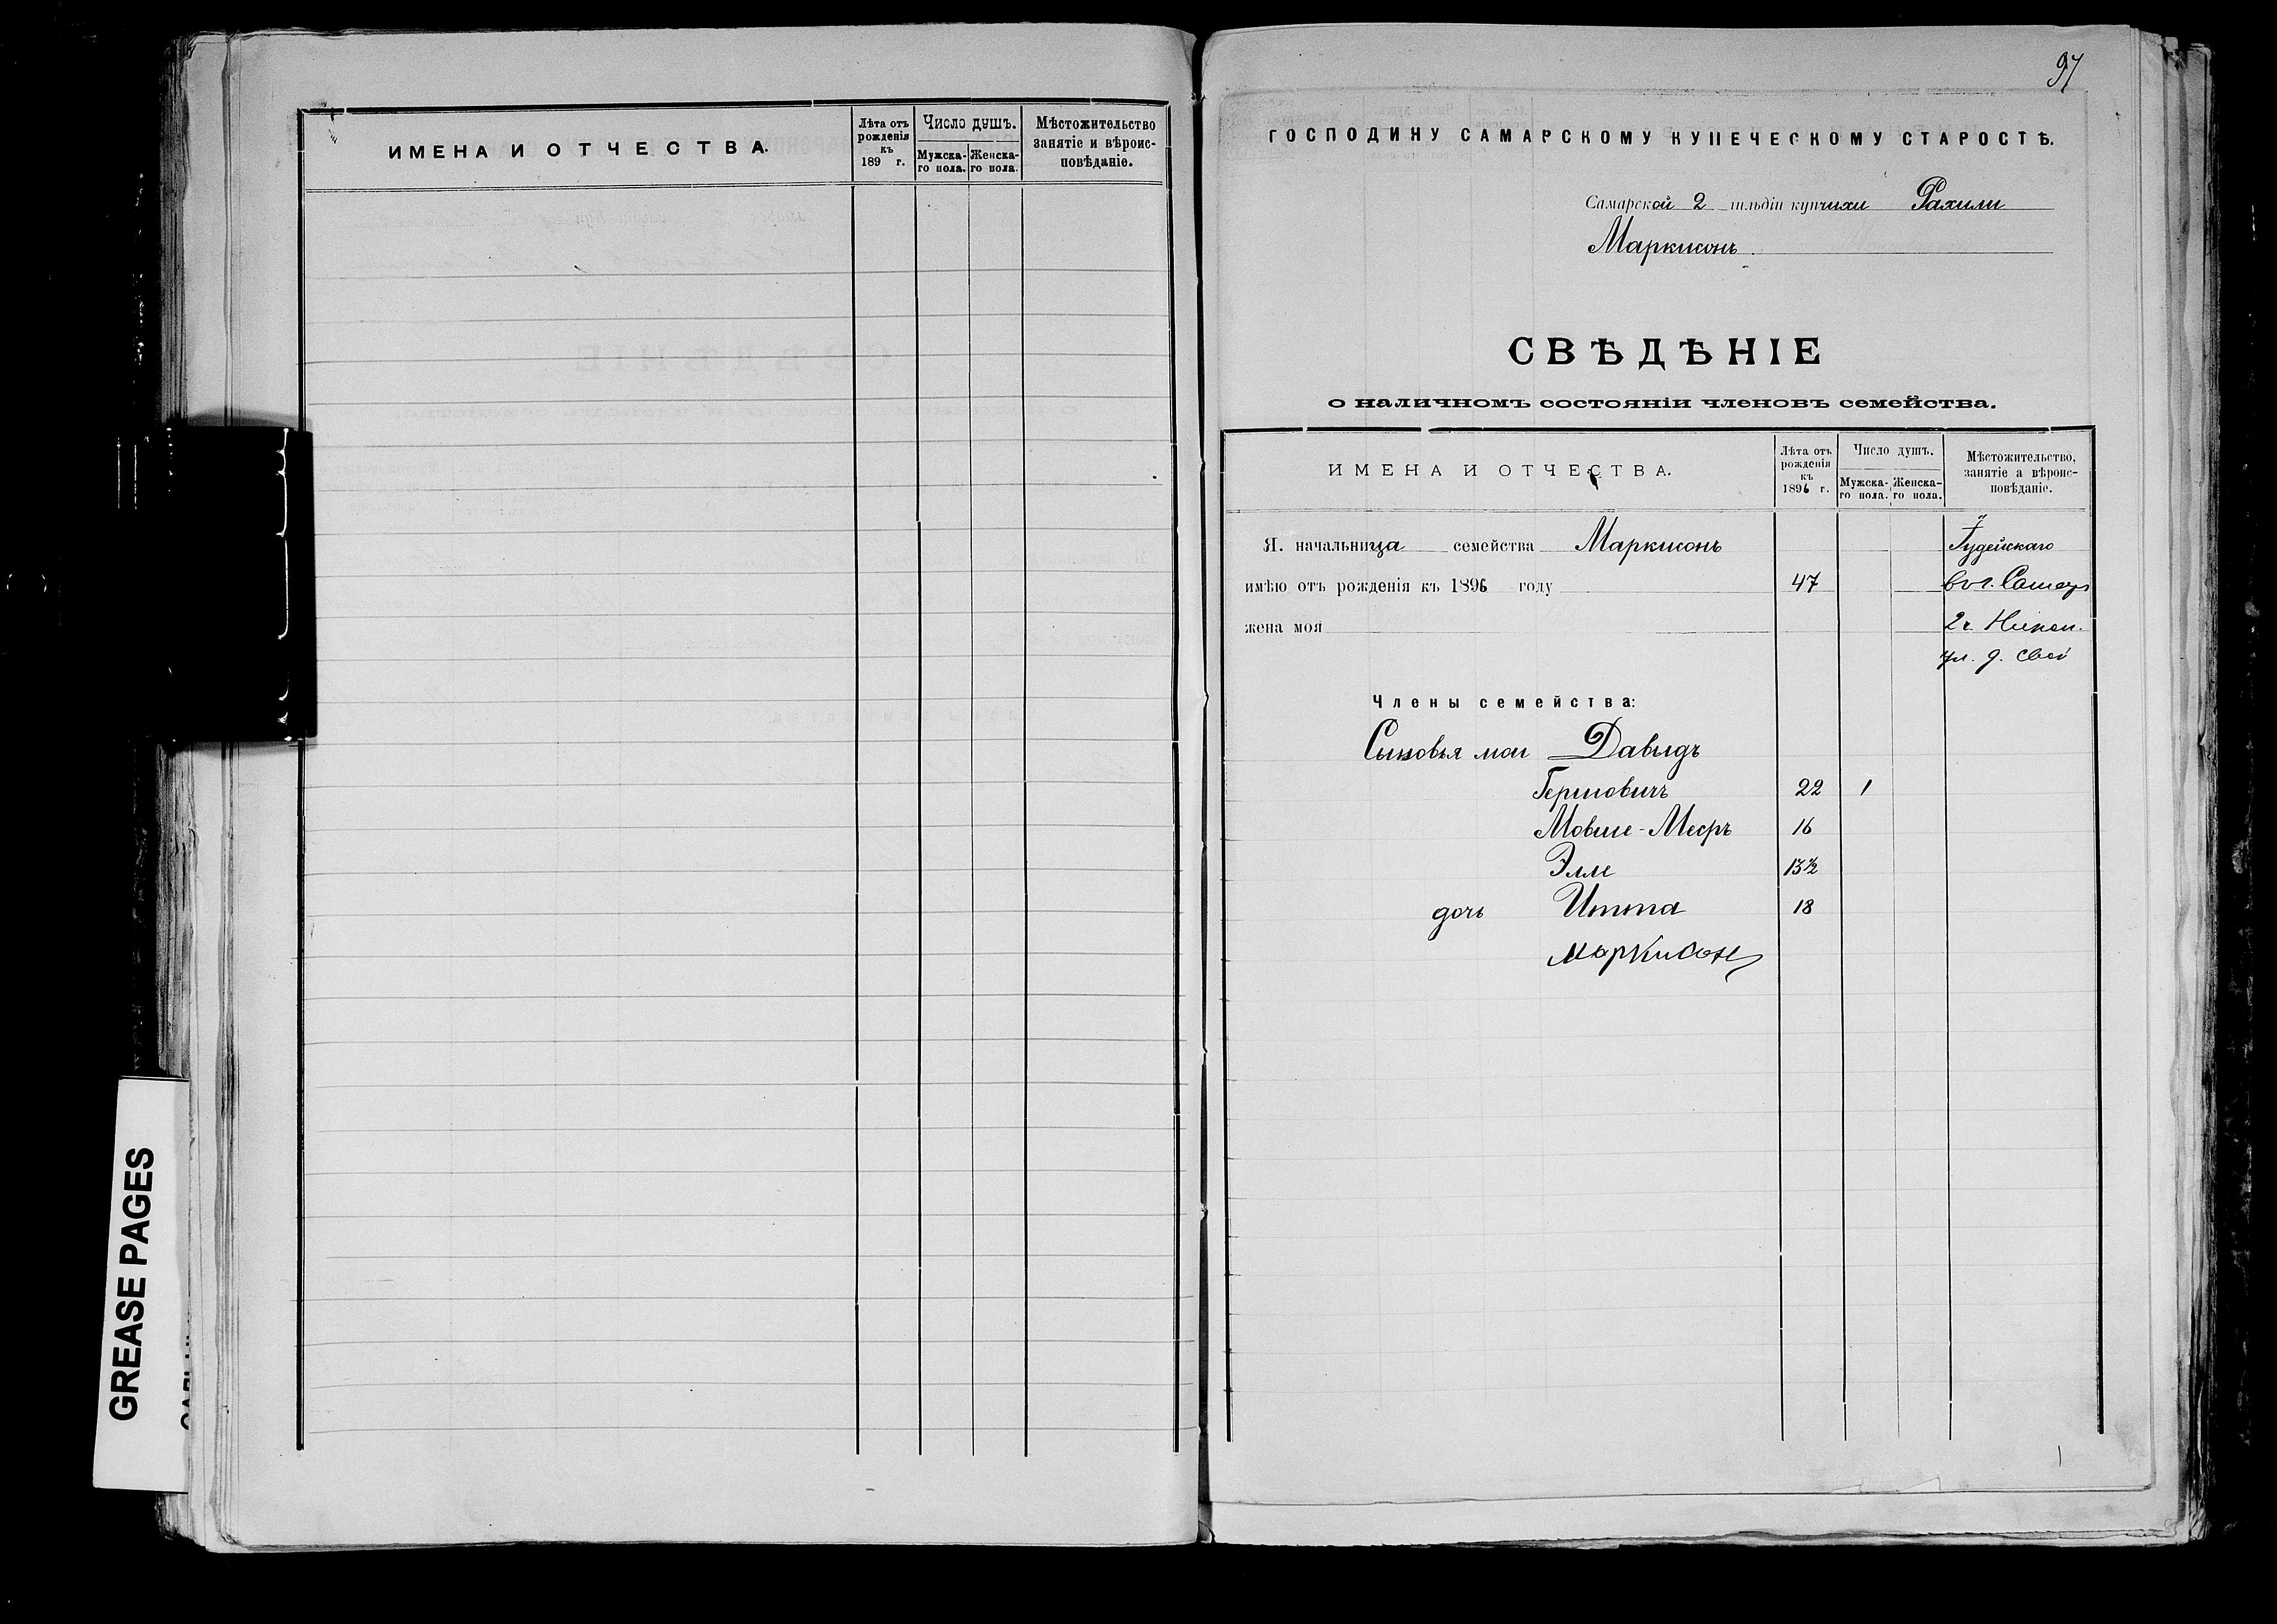 ИМЕНА И ОТЧЕСТВА.
Лѣта отъ рожденія къ 189 г.
Число душъ.
Мужска-го пола.
Женска-го пола.
Мѣстожительство занятіе и вѣроис-повѣданіе.
97
ГОСПОДИНУ САМАРСКОМУ КУПЕЧЕСКОМУ СТАРОСТѢ.
Самарской 2 гильдіи купчихи Рахили
Маркисонъ
СВѢДѢНІЕ
о наличномъ состояніи членовъ семейства.
ИМЕНА И ОТЧЕСТВА.
Лѣта отъ рожденія къ 1896 г.
Число душъ.
Мужска-го пола.
Женска-го пола.
Мѣстожительство, занятіе а вѣроис-повѣданіе.
Я. начальница семейства Маркисонъ Іудейскаго
имѣю отъ рожденія къ 1896 году 47 въ г. Самарѣ
жена моя 2 ч.
ул. д. свой
Члены семейства:
Сыновья мои Давыдъ
Гершовичъ 22 1
Мовше-Мееръ 16
Элле 13½
дочь Итта 18
Маркисон
GREASE PAGES